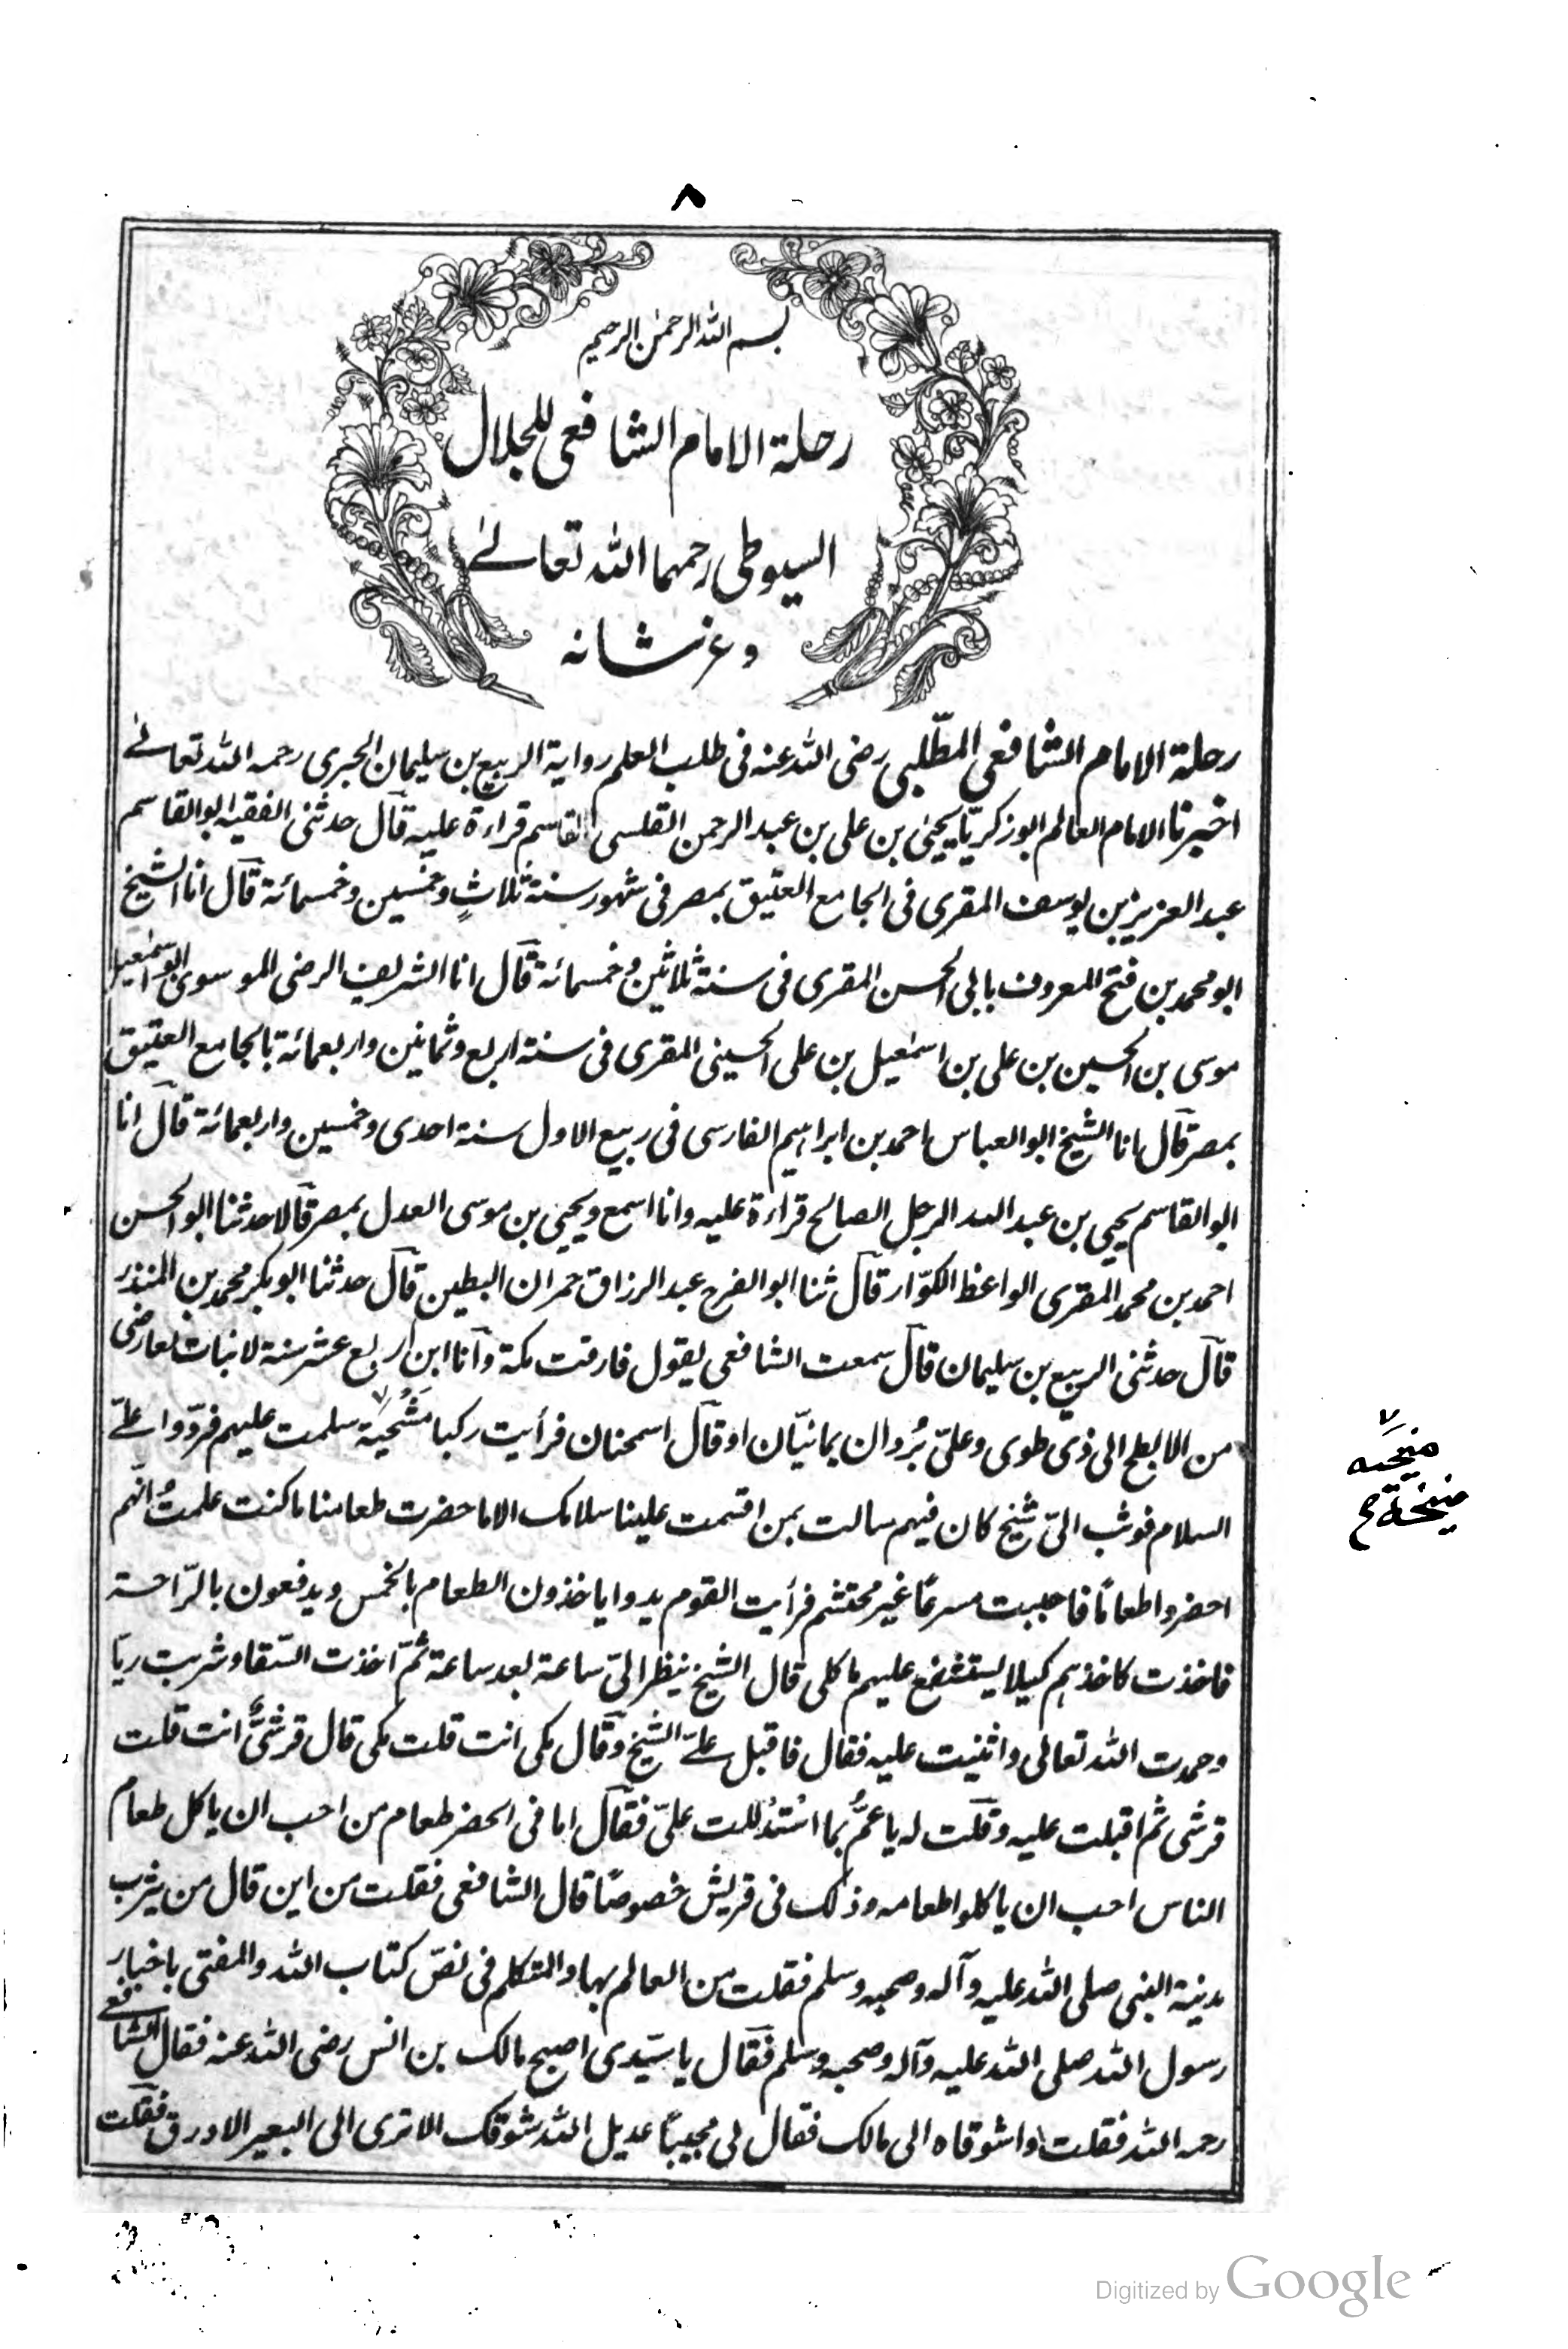 ٨
بسم الله الرحمن الرحيم
رحلة الامام الشافعی للجلال
السیوطی رحمهما الله تعالے
و عز شانه
رحلة الامام الشافعی المطّلبی رضی الله عنه فی طلب العلم روایة الربیع بن سلیمان الجبری رحمه الله تعالے
اخبرنا الامام العالم ابو زکریّا یحییٰ بن علی بن عبد الرحمن القلسی القاسم قراءة علیه قآل حدثنی الفقیه ابو القاسم
عبد العزیز بن یوسف المقری فی الجامع العتیق بمصر فی شهور سنة ثلاثٍ وخمسین وخمسمائة قآل انا الشیخ
ابو محمد بن فتح المعروف بابی الحسن المقری فی سنة ثلاثین وخمسمائة قآل انا الشریف الرضی الموسوی ابو اسمٰعیل
موسی بن الحسین بن علی بن اسمٰعیل بن علی الحسینی المقری فی سنة اربع وثمانین واربعمائة بالجامع العتیق
بمصر قآل انا الشیخ ابو العباس احمد بن ابراهیم الفارسی فی ربیع الاول سنة احدی وخمسین واربعمائة قآل انا
ابو القاسم یحیی بن عبد الله الرجل الصالح قراءة علیه وانا اسمع ویحیی بن موسی العدل بمصر قآلا حدثنا ابو الحسن
احمد بن محمد المقری الواعظ الکوّار قآل ثنا ابو الفرج عبد الرزاق حمران البطین قآل حدثنا ابو بکر محمد بن المنذر
قآل حدثنی الربیع بن سلیمان قآل سمعت الشافعی یقول فارقت مکة وآنا ابن اربع عشر سنة لا نبات بعارضی
من الابطح الی ذی طوی وعلیّ بُردان یمانیّان او قآل اسمحنان فرأیت رکبا مَنُحیّة ٧ سلمت علیهم فردّوا علےّ
السلام فوثب الیّ شیخ کان فیهم سالت بمن اقسمت علینا سلامک الا ما حضرت طعامنا ما کنت علمتُ انّهم
احضروا طعاماً فاجبت مسرعًا غیر محتشم فرأیت القوم بدوا یاخذون الطعام بالخمس ویدفعون بالرّاحة
فاخذت کاخذهم کیلا یستشنع علیهم ماکلی قال الشیخ ینظر الیّ ساعة بعد ساعة ثمّ اخذت السّقا وشربت ریّا
وحمدت الله تعالی واثنیت علیه فقال فاقبل علےّ الشیخ وقآل مکی انت قلت مکی قال قرشیٌّ انت قلت
قرشی ثم اقبلت علیه وقلت له یا عمُّ بما استدللت علیّ فقآل اما فی الحضر طعام من احب ان یاکل طعام
الناس احب ان یاکلوا طعامه وذلک فی قریش خصوصًا قال الشافعی فقلت من این قال من یثرب
مدینة النبی صلی الله علیه وآله وصحبه وسلم فقلت من العالم بها والمتکلم فی نصّ کتاب الله والمفتی باخبار
رسول الله صلی الله علیه وآله وصحبه وسلم فقآل یا سیّدی اصبح مالک بن انس رضی الله عنه فقال الشافعے
رحمه الله فقلت واشوقاه الی مالک فقال لی مجیباً عدیل الله شوقک الا تری الی البعیر الاورق فقلت
٧
منیحیه
Digitized by Google